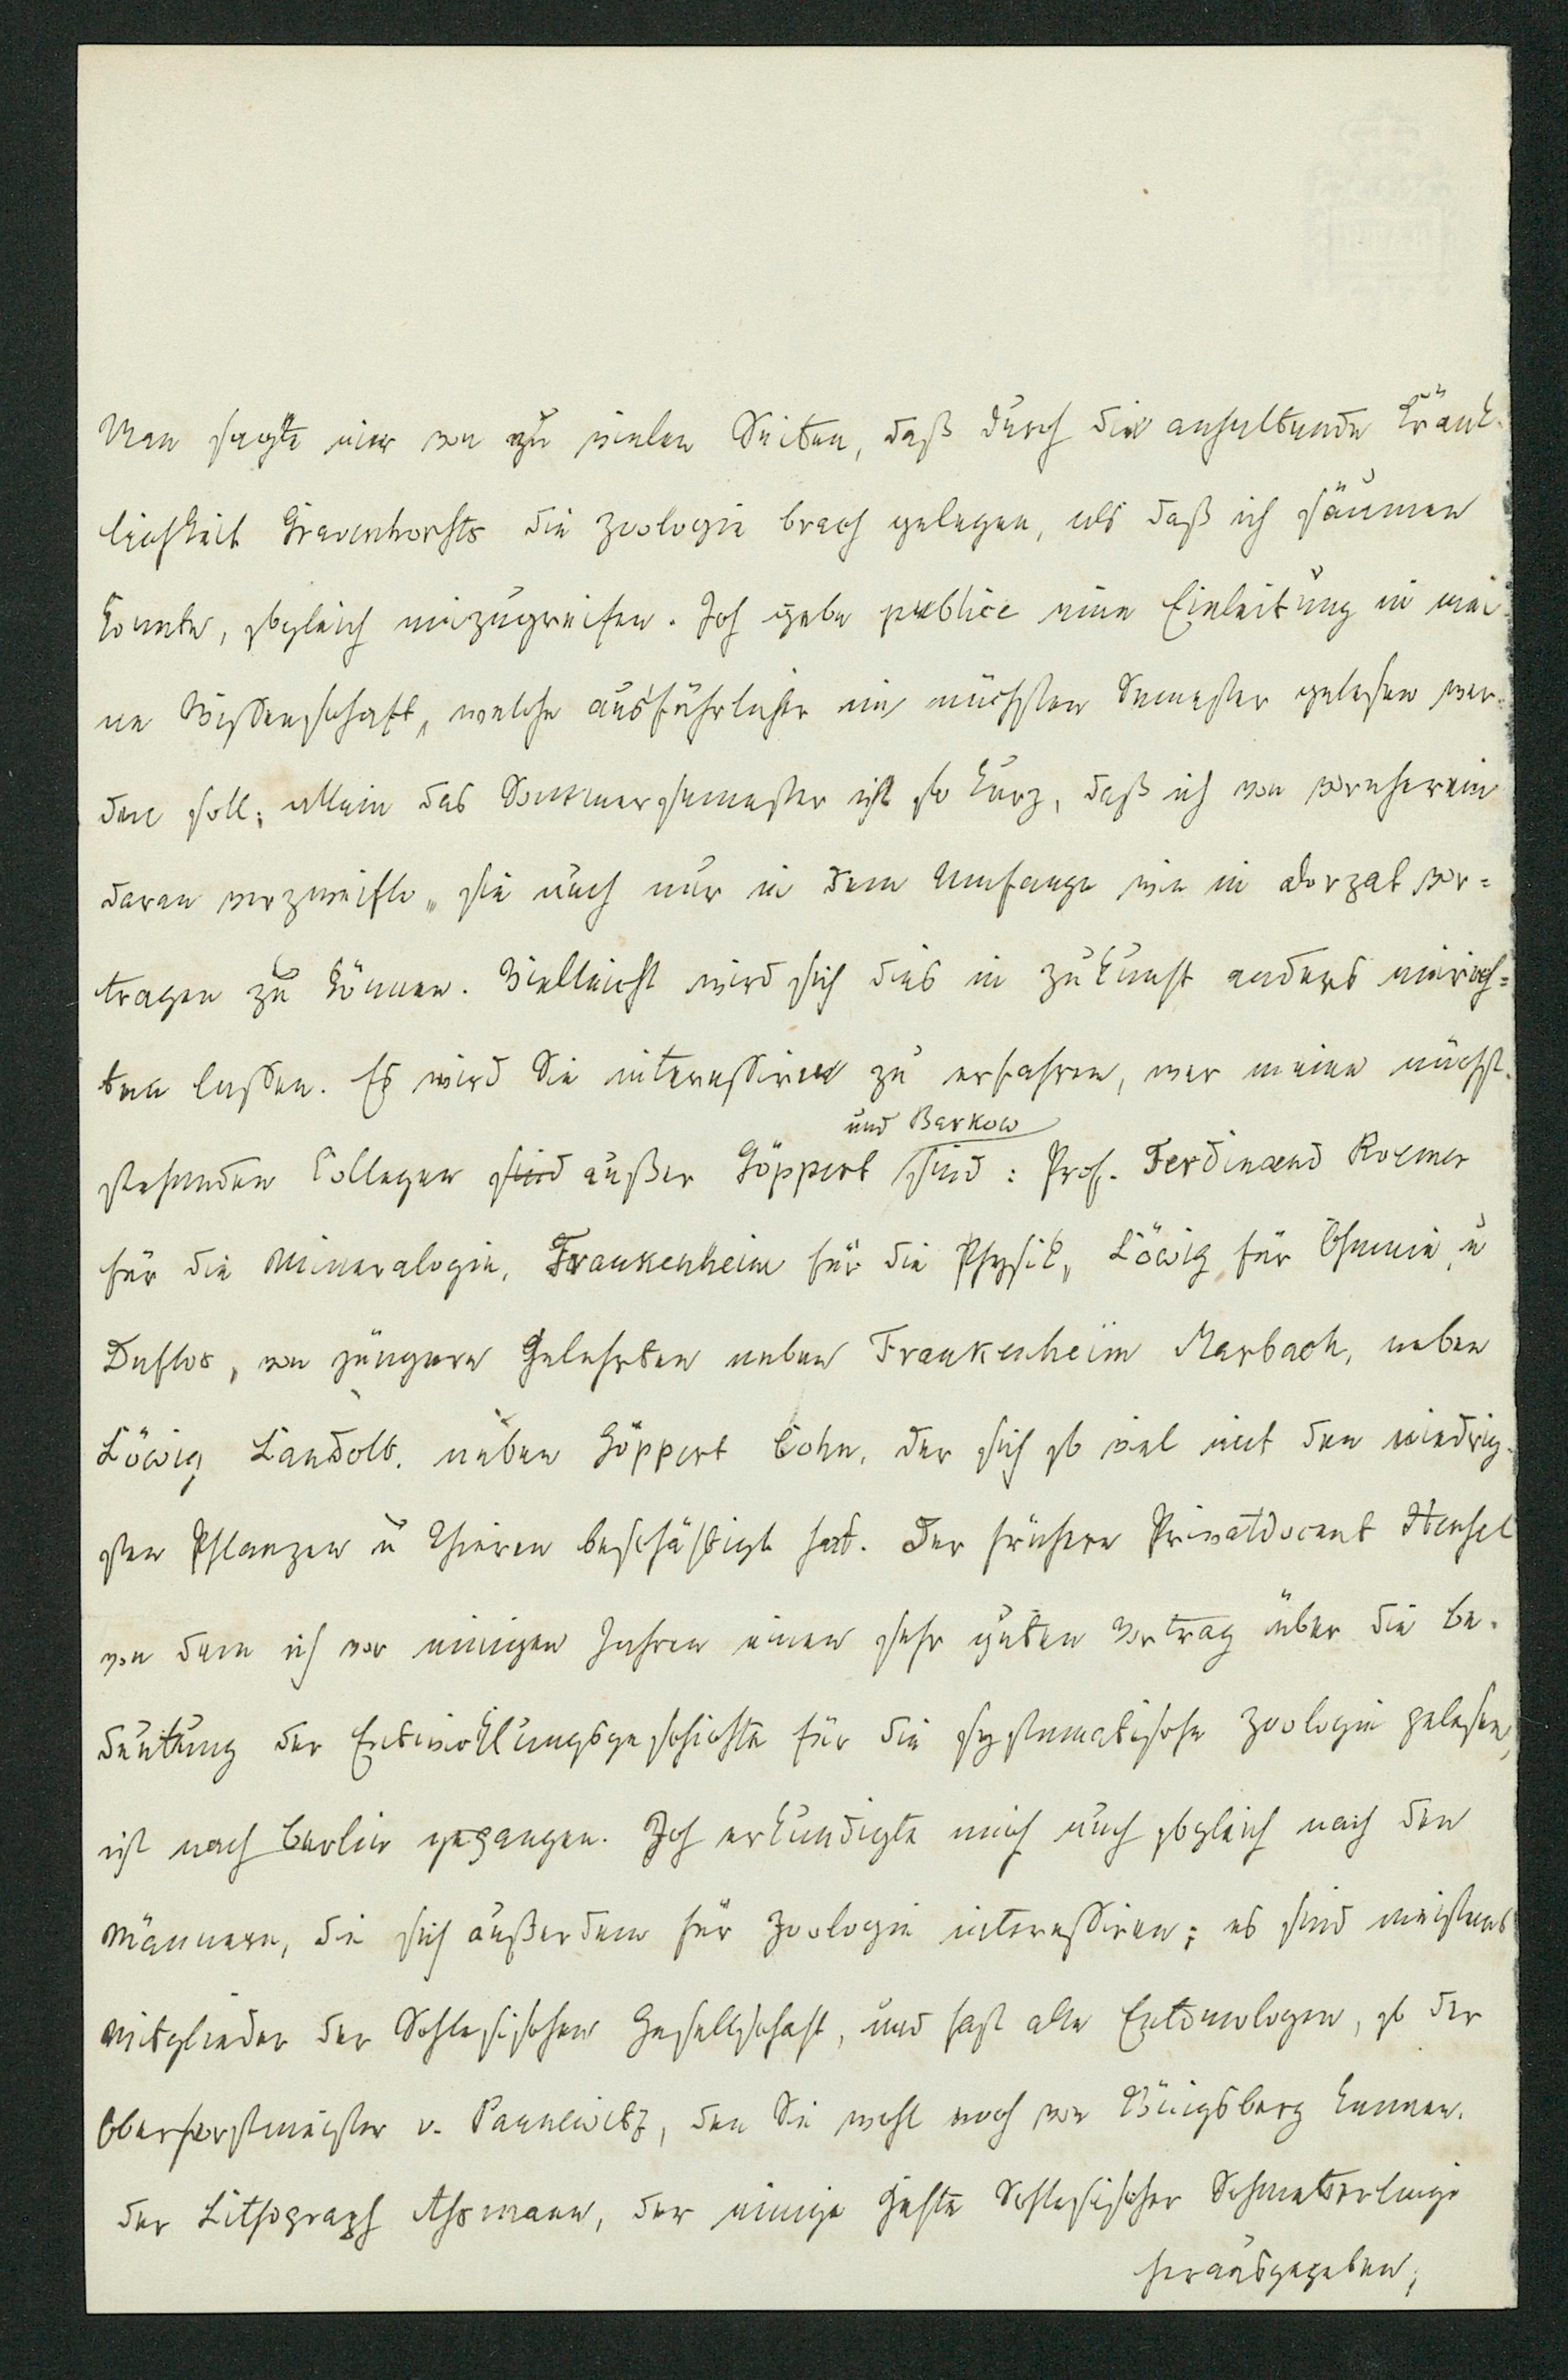 Man sagte mir von zu vielen Seiten, daß durch die anhaltende Kränk-
lichkeit Gravenhorsts die Zoologie brach gelegen, als daß ich säumen
konnte, sogleich einzugreifen. Ich gebe publice eine Einleitung in mei-
ne Wissenschaft, welche ausführlicher im nächsten Semester gelesen wer-
den soll; allein das Sommersemester ist so kurz, daß ich von vornherein
daran verzweifle, sie auch nur in dem Umfange wie in Dorpat vor=
tragen zu können. Vielleicht wird sich dies in Zukunft anders einrich=
ten lassen. Es wird Sie interessiren zu erfahren, wer meine nächst-
und Barkow
stehenden Collegen sind außer Göppert sind: Prof. Ferdinand Roemer
für die Mineralogie, Frankenheim für die Physik, Löwig für Chemie, u
Duflos, von jüngern Gelehrten neben Frankenheim Marbach, neben
Löwig Landolt, neben Göppert Cohn, der sich so viel mit den niedrig-
sten Pflanzen u Thieren beschäftigt hat. Der frühere Privatdocent Hensel
von dem ich vor einigen Jahren einen sehr guten Vortrag über die Be-
deutung der Entwicklungsgeschichte für die systematische Zoologie gelesen,
ist nach Berlin gegangen. Ich erkundigte mich auch sogleich nach den
Männern, die sich außerdem für Zoologie interessiren; es sind meistens
Mitglieder der Schlesischen Gesellschaft, und fast alle Entomologen, so der
Oberforstmeister v. Pannewitz, den Sie wohl noch von Königsberg kennen,
der Lithograph Assmann, der einige Hefte Schlesischer Schmetterlinge
herausgegeben,